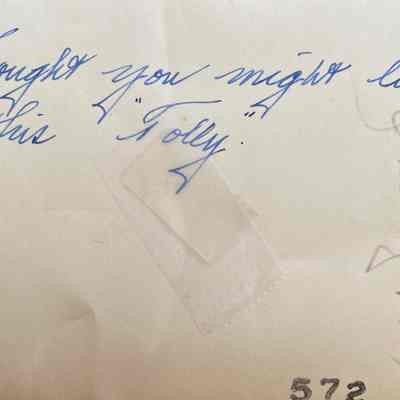 ought you might li
this "Tolly".
572